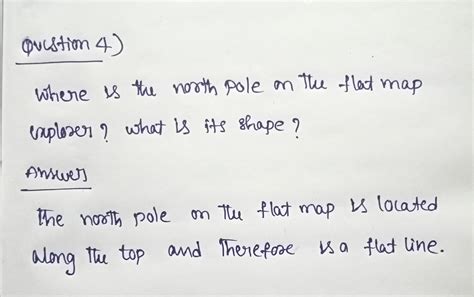 Question 4)
Where is the north pole on the flat map
explorer? what is its shape?
Answer
The north pole on the flat map is located
along the top and Therefore is a flat line.